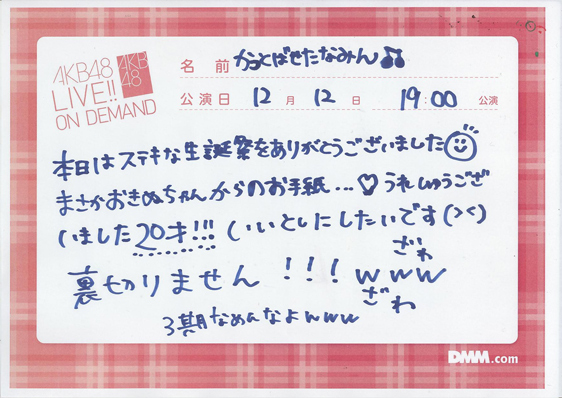 AKB48
LIVE!!
ON DEMAND
AKB
48
名前 かっとばせたなみん♪♪
公演日 12月 12日 19:00 公演
本日はステキな生誕祭をありがとうございました
まさかおきぬちゃんからのお手紙...♡うれしゅうござ
いました20才!!!いいとしにしたいです(><)
裏切りません!!!www
ざわ
ざわ
3期なめんなよwww
DMM.com